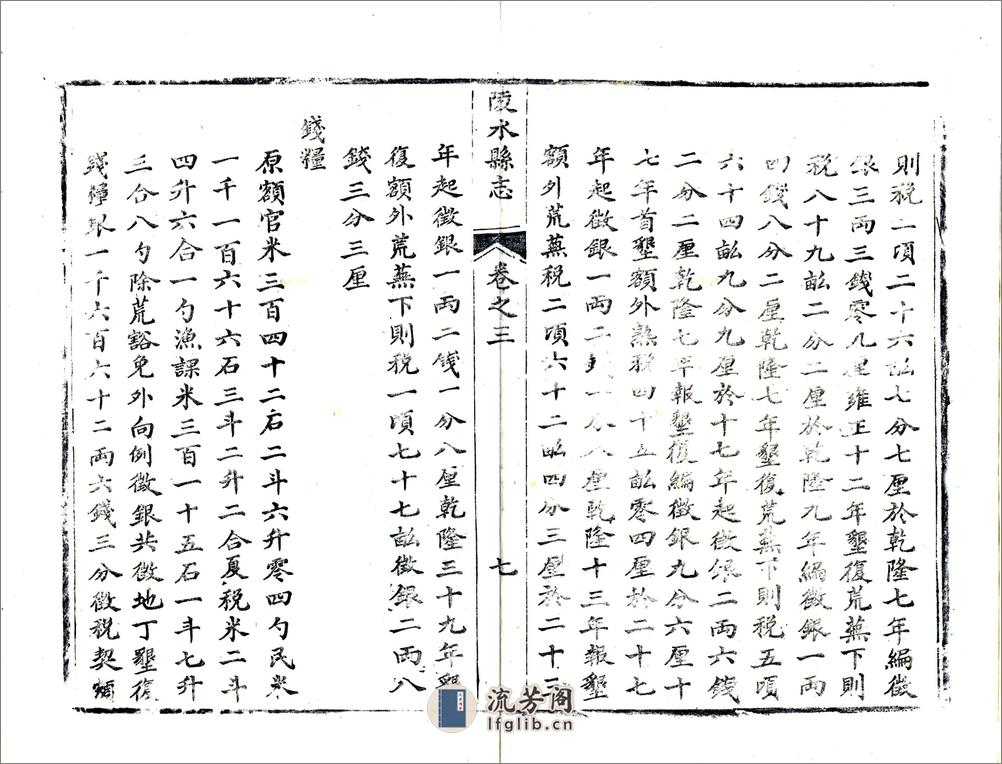 則税二頃二十六畆七分七厘於乾隆七年編徵
銀三両三錢零九厘雍正十二年墾復荒蕪下則
税八十九畆二分二厘於乾隆九年編徵銀一両
四錢八分二厘乾隆七年墾復荒蕪下則税五頃
六十四畆九分九厘於十七年起徵銀二両六錢
二分二厘乾隆七年報墾復編徵銀九分六厘十
七年首墾額外熟税四十五畆零四厘於二十七
年起徵銀一両二錢一分八厘乾隆十三年報墾
額外荒蕪税二頃六十二畆四分三厘於二十三
陵水縣志
卷之三
七
年起徵銀一両二錢一分八厘乾隆三十九年墾
復額外荒蕪下則税一頃七十七畆徵銀二両八
錢三分三厘
錢糧
原額官米三百四十二石二斗六升零四勺民米
一千一百六十六石三斗二升二合夏税米二斗
四升六合一勺漁課米三百一十五石一斗七升
三合八勺除荒豁免外向例徵銀共徵地丁墾復
錢糧銀一千六百六十二両六錢三分徵税契煩
流芳阁
lfglib.cn